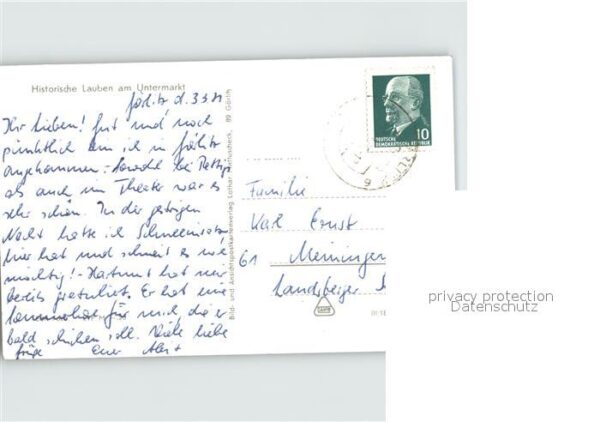 Historische Lauben am Untermarkt
Görlitz d. 3.3.71
Ihr Lieben! Gut und noch
pünktlich bin ich in Görlitz
angekommen. Sowohl bei
als auch im Theater war es
sehr schön. In der gestrigen
Nacht hatte ich Schneeeinsatz,
hier hat und schneit es wie
! - Hartmut hat mir
bereits Er hat eine
für mich die er
bald schicken soll. Viele liebe
Grüße Euer
Bild- und Ansichtspostkartenverlag Lothar 89 Görlitz
DEUTSCHE
DEMOKRATISCHE REPUBLIK
10
Familie
Karl Ernst
61 Meiningen
Landsberger
privacy protection
Datenschutz